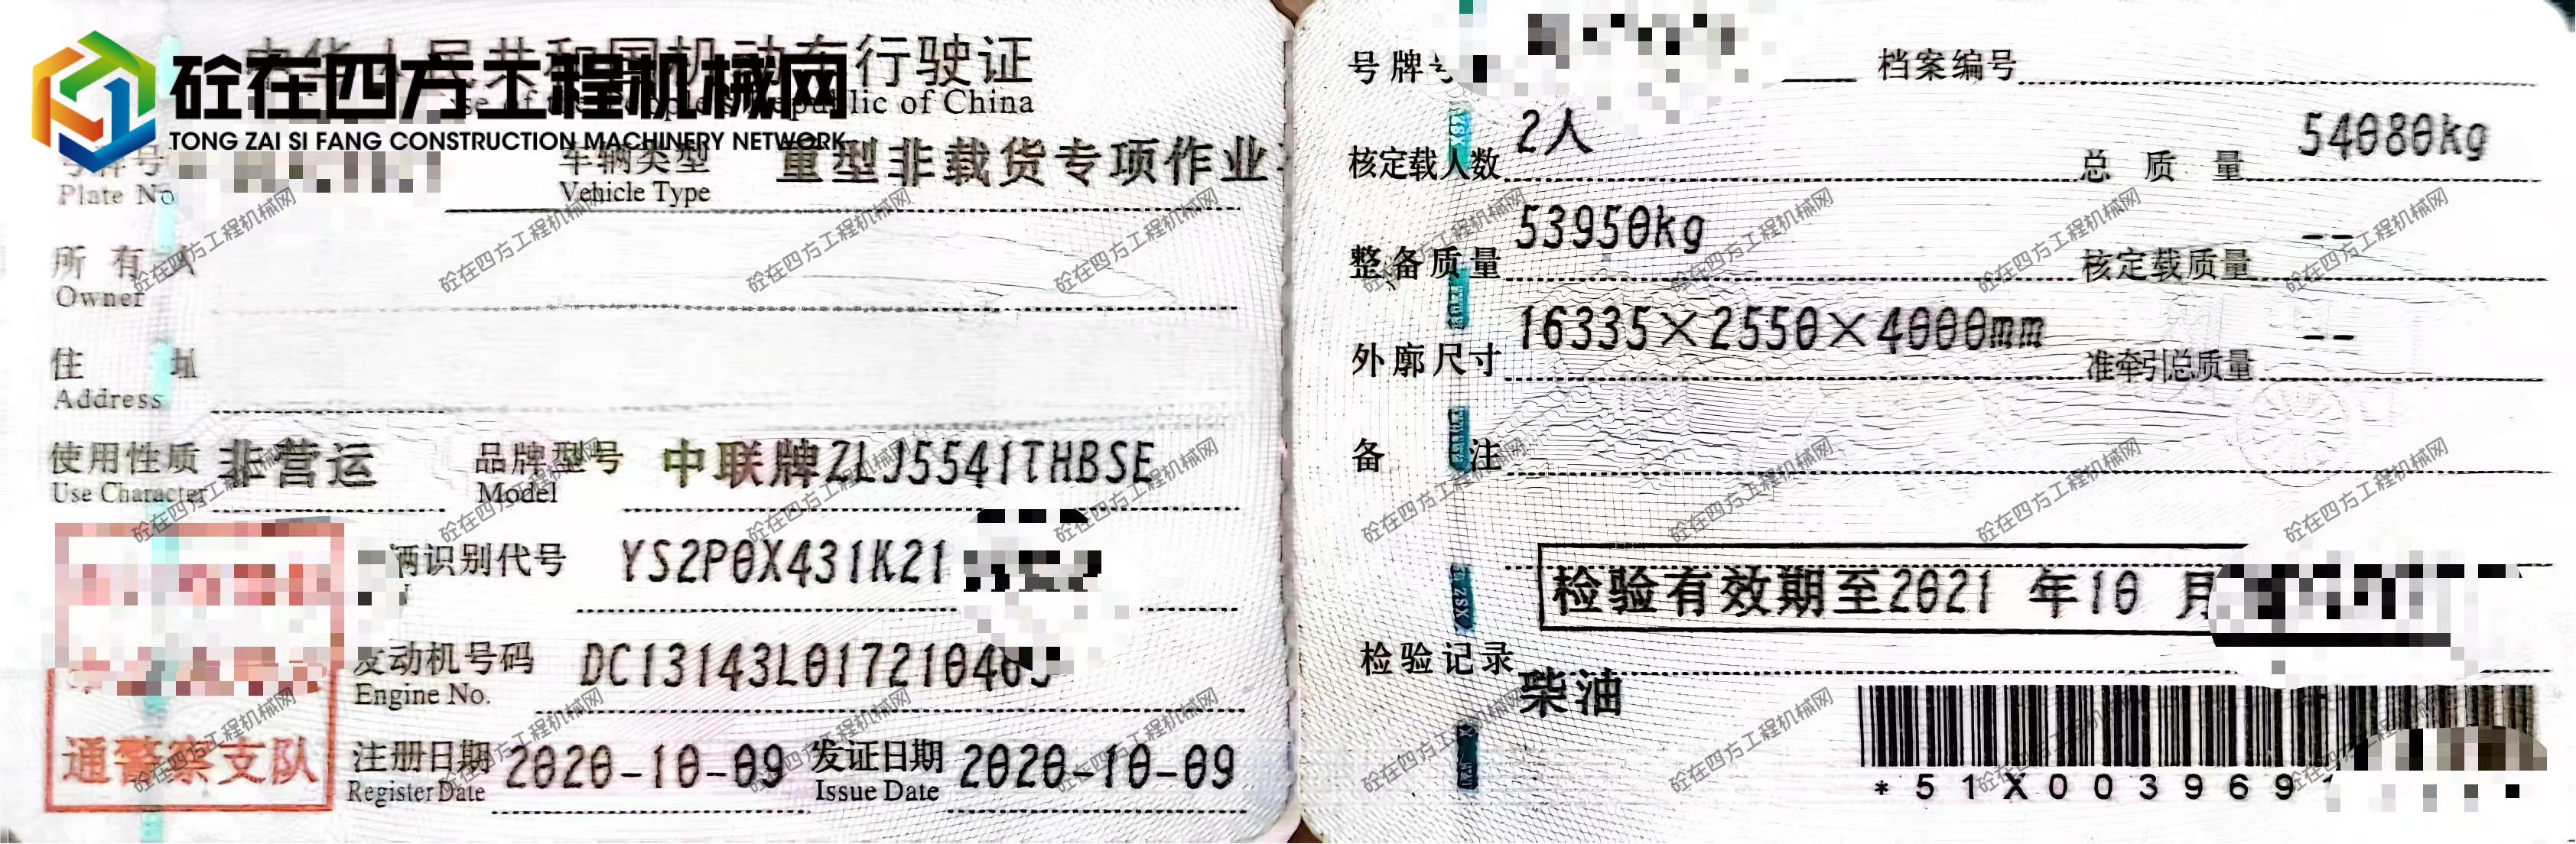 砼在四方工程机械网
TONG ZAI SI FANG CONSTRUCTION MACHINERY NETWORK
行驶证
of China
Plate No
车辆类型 重型非载货专项作业
Vehicle Type
所有人
Owner
住址
Address
使用性质 非营运 品牌型号 中联牌ZLJ5541THBSE
Use Character Model
辆识别代号 YS2P0X431K21
发动机号码 DC13143L01721040
Engine No.
通警察支队
注册日期 2020-10-09 发证日期 2020-10-09
Register Date Issue Date
号牌 档案编号
核定载人数 2人 总质量 54080kg
整备质量 53950kg 核定载质量 --
外廓尺寸 16335×2550×4000mm 准牵引总质量 --
备注
检验有效期至2021 年10 月
检验记录
柴油
*51X003969
砼在四方工程机械网